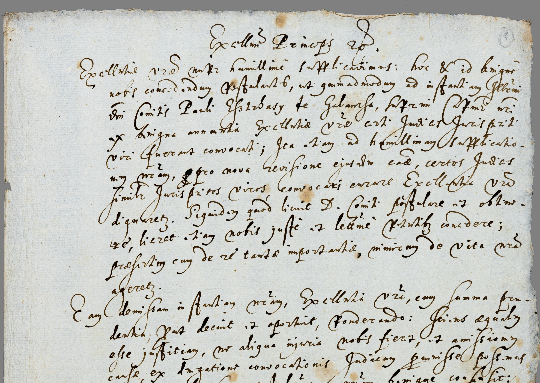 Excell̃me Princeps &c.
Excellentiae vrae nuper humillime supplicavimus: hoc & id benigne
nobis concedendum postulantes, ut quemadmodum ad instantiam
Comitis Pauli Eszterhasy de Galantha, supremi
ex benigna annuentia Excellentiae vrae certi Judices Jurisperiti
viri fuerant convocati; Ita etiam ad humillimam supplicatio-
nem nram, pro nova revisione ejusdem causae, certos Judices
similiter Jurisperitos viros, convocari curare Excellentia vra
dignaretur. Siquidem quod licuit D. Comiti postulare et obtine-
re, liceret etiam nobis juste et legitime concedere;
praesertim cum de re tantae importantiae, nimirum de vita nra
ageretur.
Eam demissam instantiam nram, Excellentia vra, cum summa pru-
dentia, prout decuit et oportuit, ponderando: sciens aequalem
esse justitiam, ne aliqua injuria nobis fieret, et amissionem
causae ex denegatione convocationis Judicum possemus
benigne